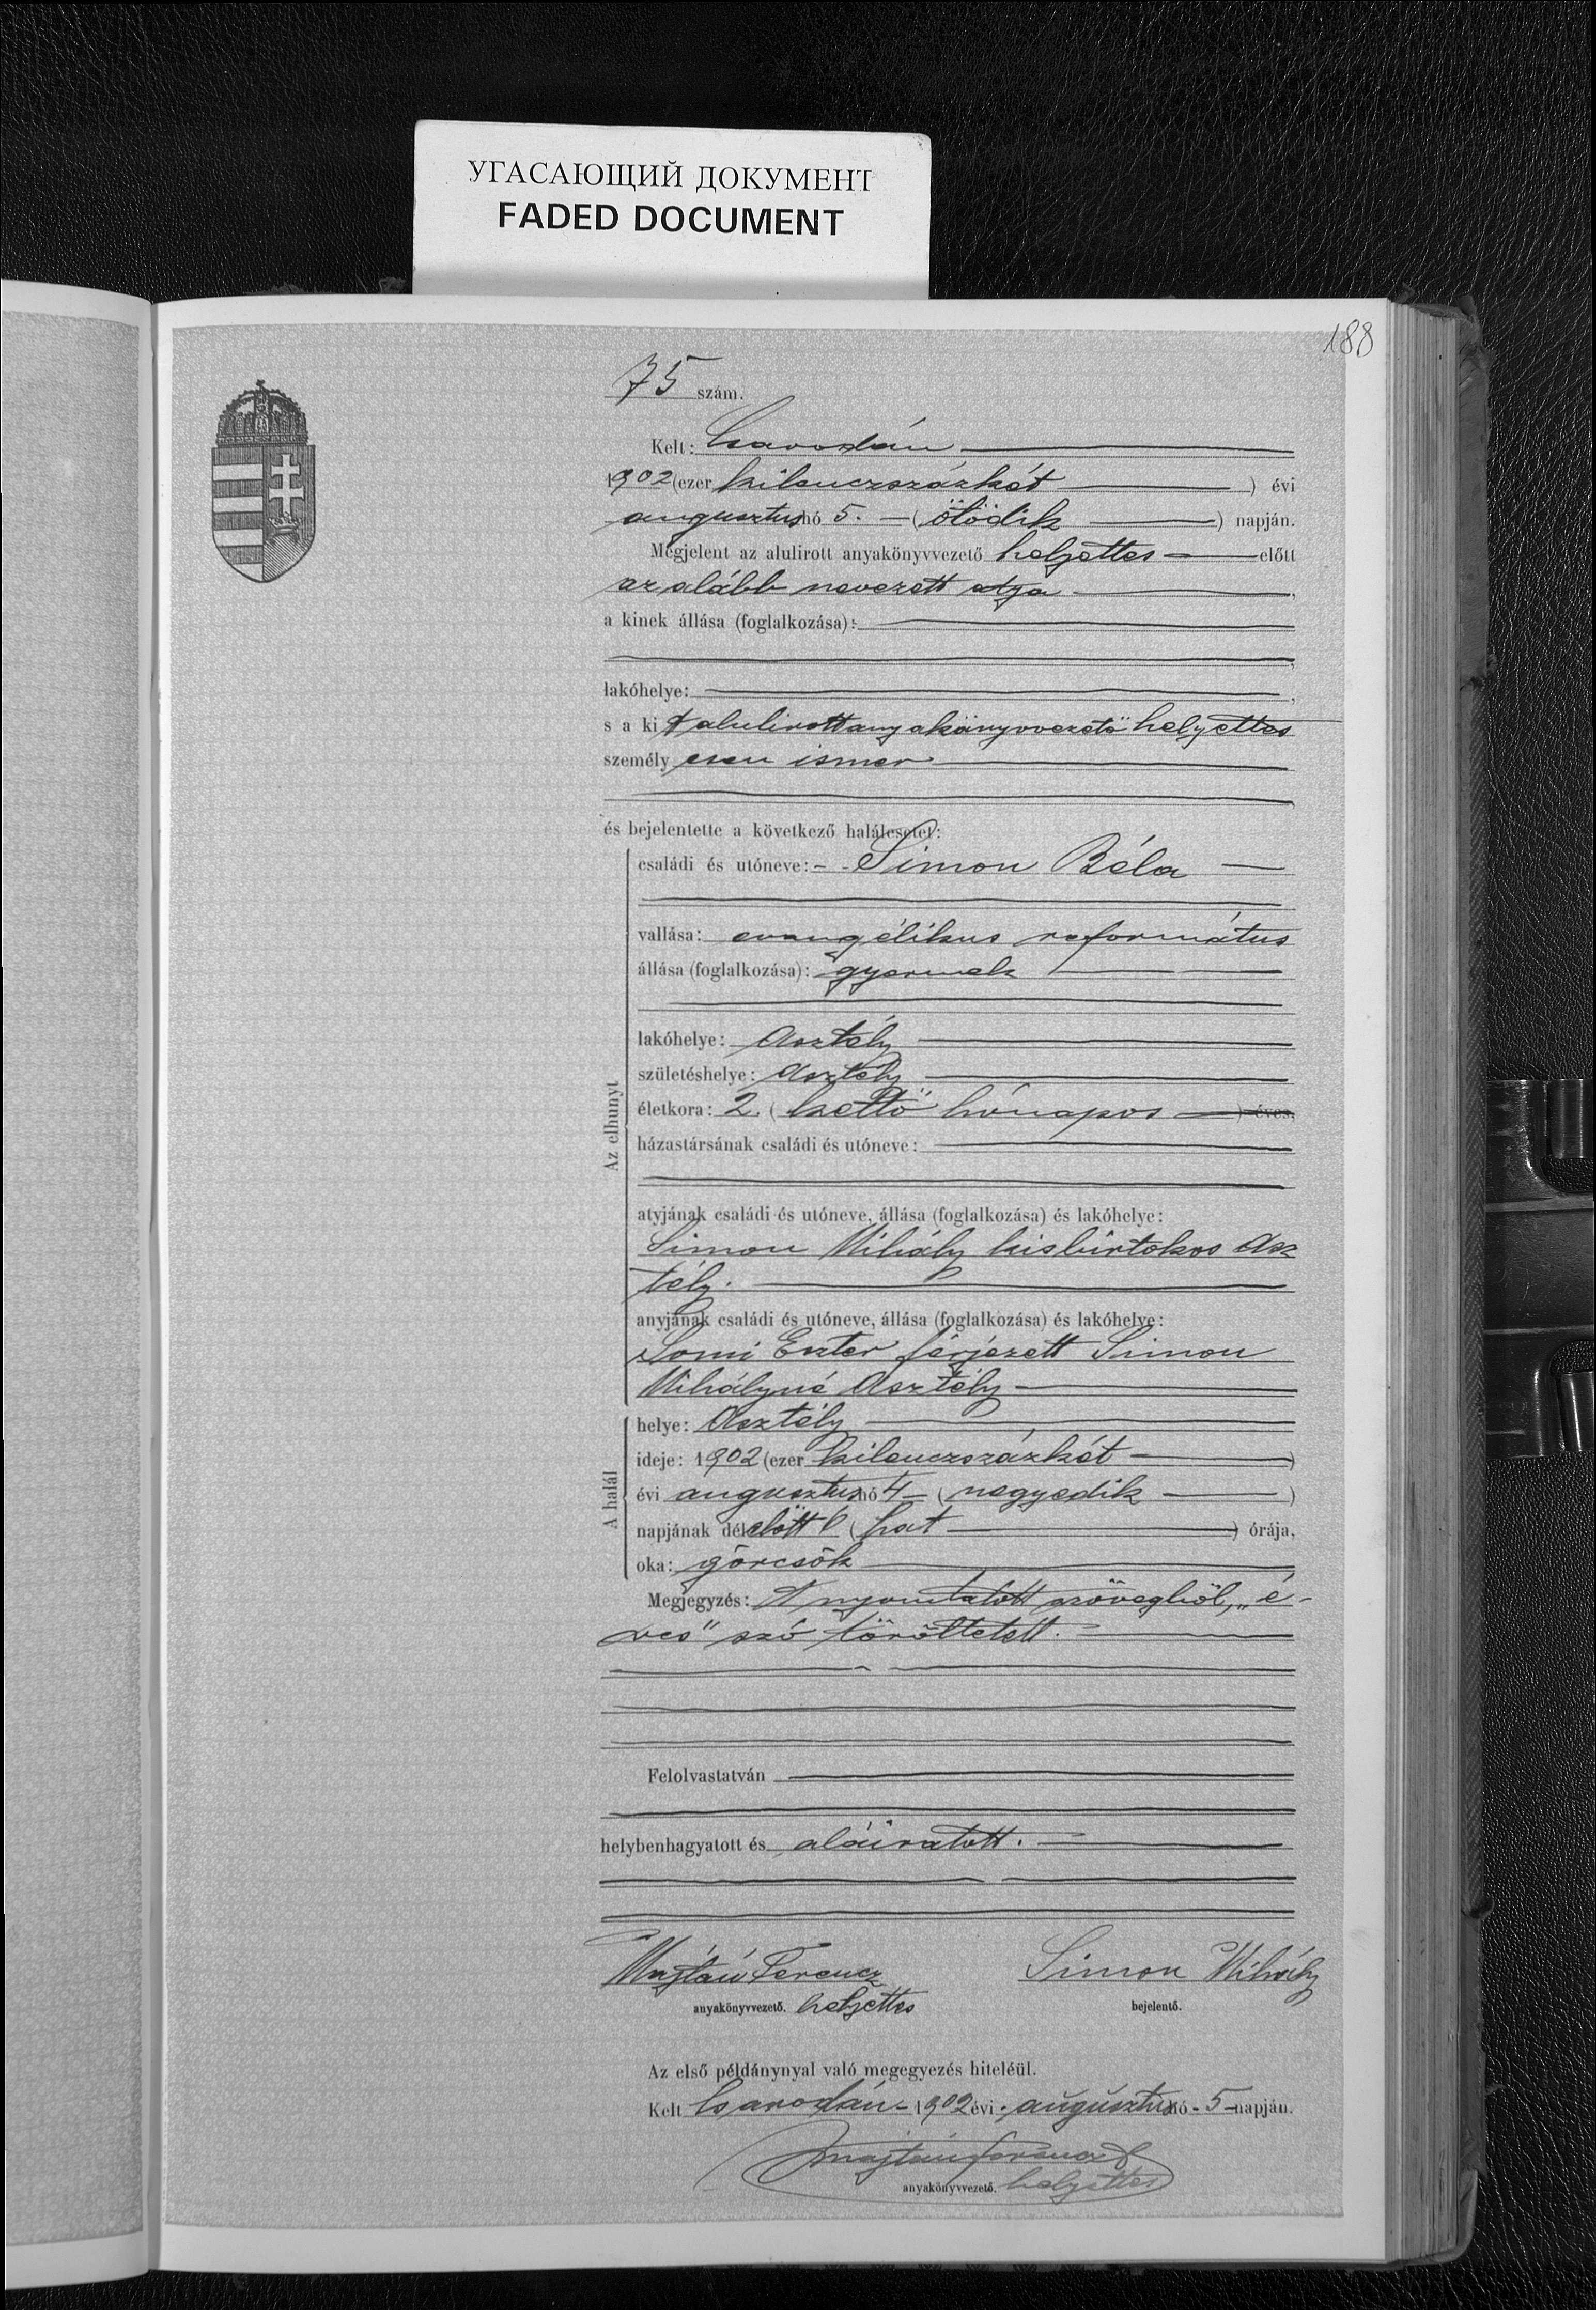 УГАСАЮЩИЙ ДОКУМЕНТ
FADED DOCUMENT
188
75 szám.
Kelt: Csarodán
1902 (ezer kilenczszázkét ) évi
augusztus hó 5. - ( ötödik ) napján.
Megjelent az alulirott anyakönyvvezető helyettes előtt
az alább nevezett atya
a kinek állása (foglalkozása):
lakóhelye:
s a kit alulirott anyakönyvvezető helyettes
személyesen ismer
és bejelentette a következő halálesetet:
Az elhunyt
családi és utóneve: - - Simon Béla
vallása: evangélikus református
állása (foglalkozása): gyermek
lakóhelye: Asztély
születéshelye: Asztély
életkora: 2. ( kettő hónapos ) éves,
házastársának családi és utóneve:
atyjának családi és utóneve, állása (foglalkozása) és lakóhelye:
Simon Mihály kisbirtokos Asz
tély.
anyjának családi és utóneve, állása (foglalkozása) és lakóhelye:
Somi Eszter férjezett Simon
Mihályné Asztély
A halál
helye: Asztély
ideje: 1902 (ezer kilenczszázkét )
évi augusztus hó 4 - ( negyedik )
napjának délelőtt 6 ( hat ) órája,
oka: görcsök
Megjegyzés: A nyomtatott szövegből, „é-
ves" szó töröltetett.
Felolvastatván
helybenhagyatott és aláiratott.
Majtán Ferencz Simon Mihály
anyakönyvvezető. helyettes bejelentő.
Az első példánynyal való megegyezés hiteléül.
Kelt Csarodán - 1902 évi augusztus hó - 5 - napján.
Majtán Ferencz
anyakönyvvezető. helyettes